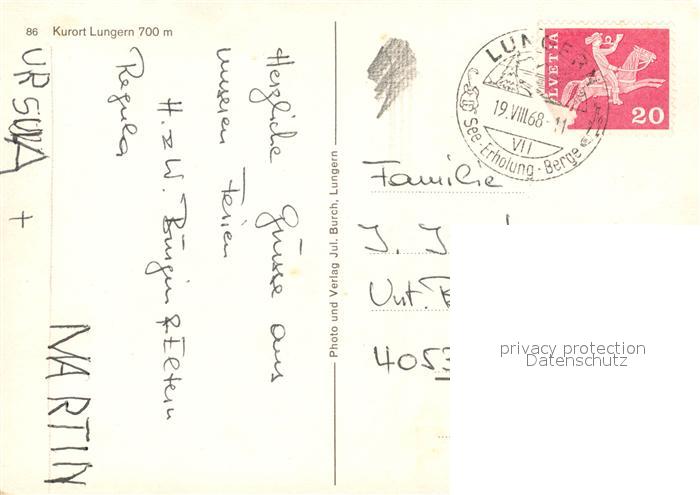 86 Kurort Lungern 700 m
Herzliche Grüsse aus
unseren Ferien
H. & W. Bürgin & Eltern
Regula
URSULA + MARTIN
Photo und Verlag Jul. Burch, Lungern
LUNGERN
19.VIII.68-11
VII
See·Erholung·Berge
HELVETIA
20
Familie
Unt.
4053
privacy protection
Datenschutz